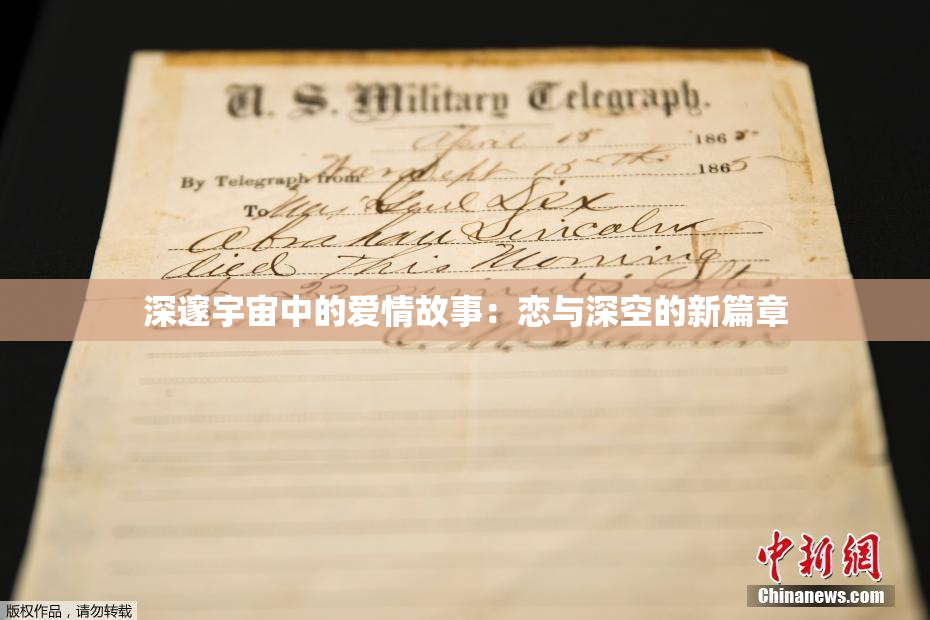 U. S. Military Telegraph.
April 15 1865
By Telegraph from War Dept 15th 1865
To Maj Genl Dix
Abraham Lincoln
died This Morning
at 22 minutes after
深邃宇宙中的爱情故事：恋与深空的新篇章
E. M. Stanton
中新网
Chinanews.com
版权作品，请勿转载